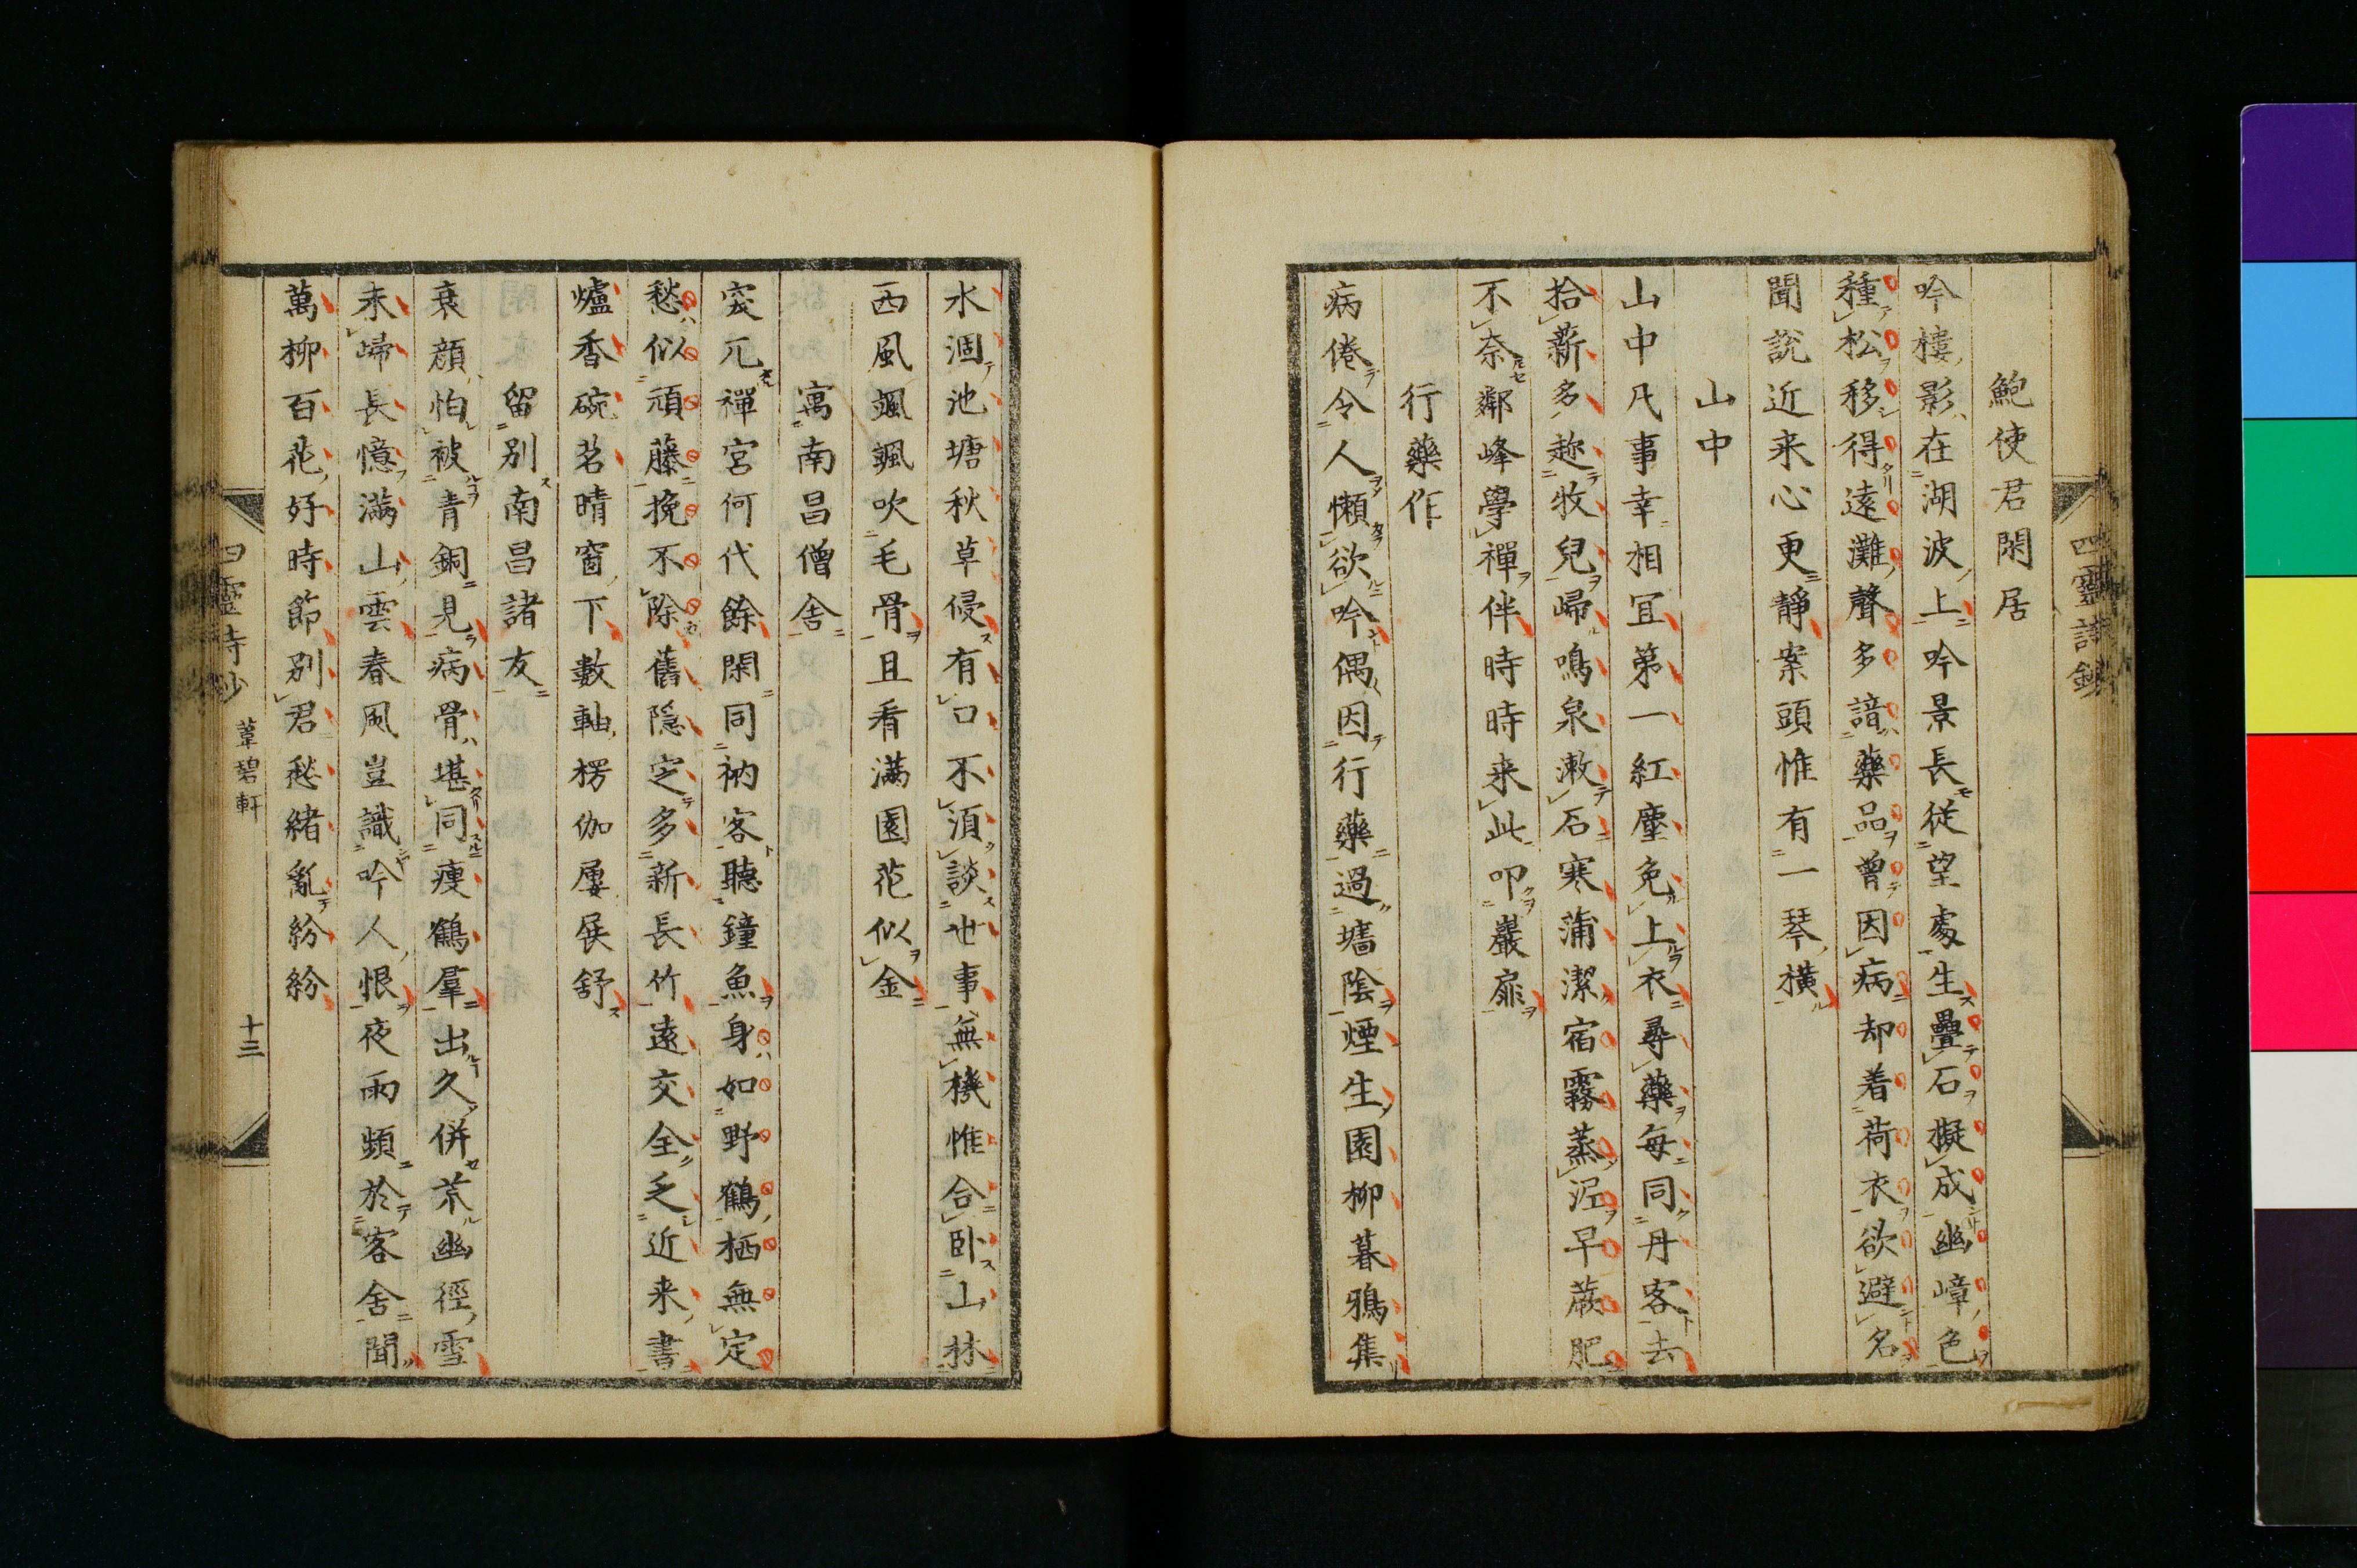 四靈詩鈔
鮑使君閑居
吟樓影在湖波上吟景長從望處生疊石擬成幽嶂色
種松移得遠灘聲多諳藥品曽因病却着荷衣欲避名
聞説近来心更靜案頭惟有一琴橫
山中
山中凡事幸相冝第一紅塵免上衣尋藥每同丹客去
拾薪多趂牧兒歸鳴泉漱石寒蒲潔宿霧蒸泥早蕨肥
不奈鄰峰學禪伴時時来此叩巖扉
行藥作
病倦令人懶欲吟偶因行藥過墻陰煙生園柳暮鴉集
水涸池塘秋草侵有口不須談世事無機惟合卧山林
西風颯颯吹毛骨且看滿園花似金
寓南昌僧舎
突兀禪宮何代餘閑同衲客聽鐘魚身如野鶴栖無定
愁似頑藤挽不除舊隠定多新長竹遠交全乏近来書
爐香碗茗晴窗下數軸楞伽屢展舒
留別南昌諸友
衰顔怕被青銅見病骨堪同瘦鶴羣出久併荒幽徑雪
未歸長憶滿山雲春風豈識吟人恨夜雨頻於客舎聞
萬柳百花好時節別君愁緒亂紛紛
四靈詩鈔 葦碧軒 十三